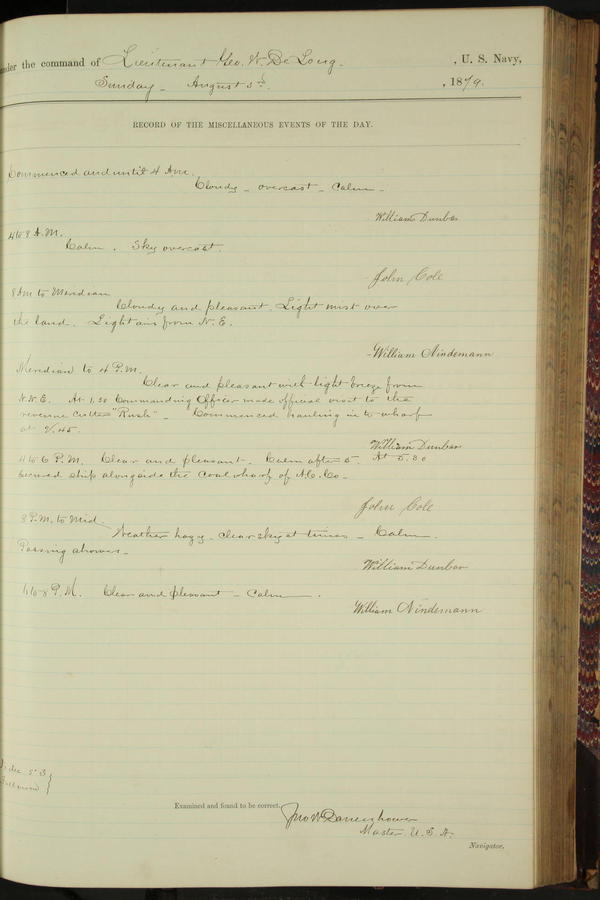 under the command of Lieutenant Geo. W. De Long. , U. S. Navy,
Sunday - August 3rd. , 1879.
RECORD OF THE MISCELLANEOUS EVENTS OF THE DAY.
Commenced and until 4 A.m.
Cloudy - overcast - Calm -
William Dunbar
4 to 8 A.M.
Calm. Sky overcast.
John Cole
8 Am to Meridian
Cloudy and pleasant. Light mist over
the land. Light airs from N. E.
William Nindemann
Meridian to 4 P.M.
Clear and pleasant with light breeze from
N.N.E. At 1.30 Commanding Officer made official visit to the
revenue cutter "Rush" - Commenced hauling in to wharf
at
William Dunbar
4 to 6 P.M. Clear and pleasant. Calm after 5. At 5.30
secured ship alongside the Coal wharf of A.C. Co -
John Cole
8 P.M. to Mid.
Weather hazy - clear sky at times - Calm.
Passing showers -
William Dunbar
6 to 8 P.M. Clear and pleasant - Calm.
William Nindemann
Examined and found to be correct.
Jno W Danenhower
Master. U.S.N.
Navigator.